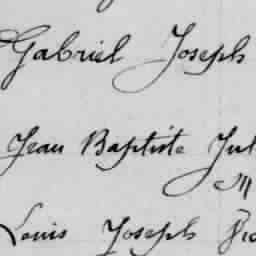 Gabriel Joseph
Jean Baptiste Jul
M
Louis Joseph